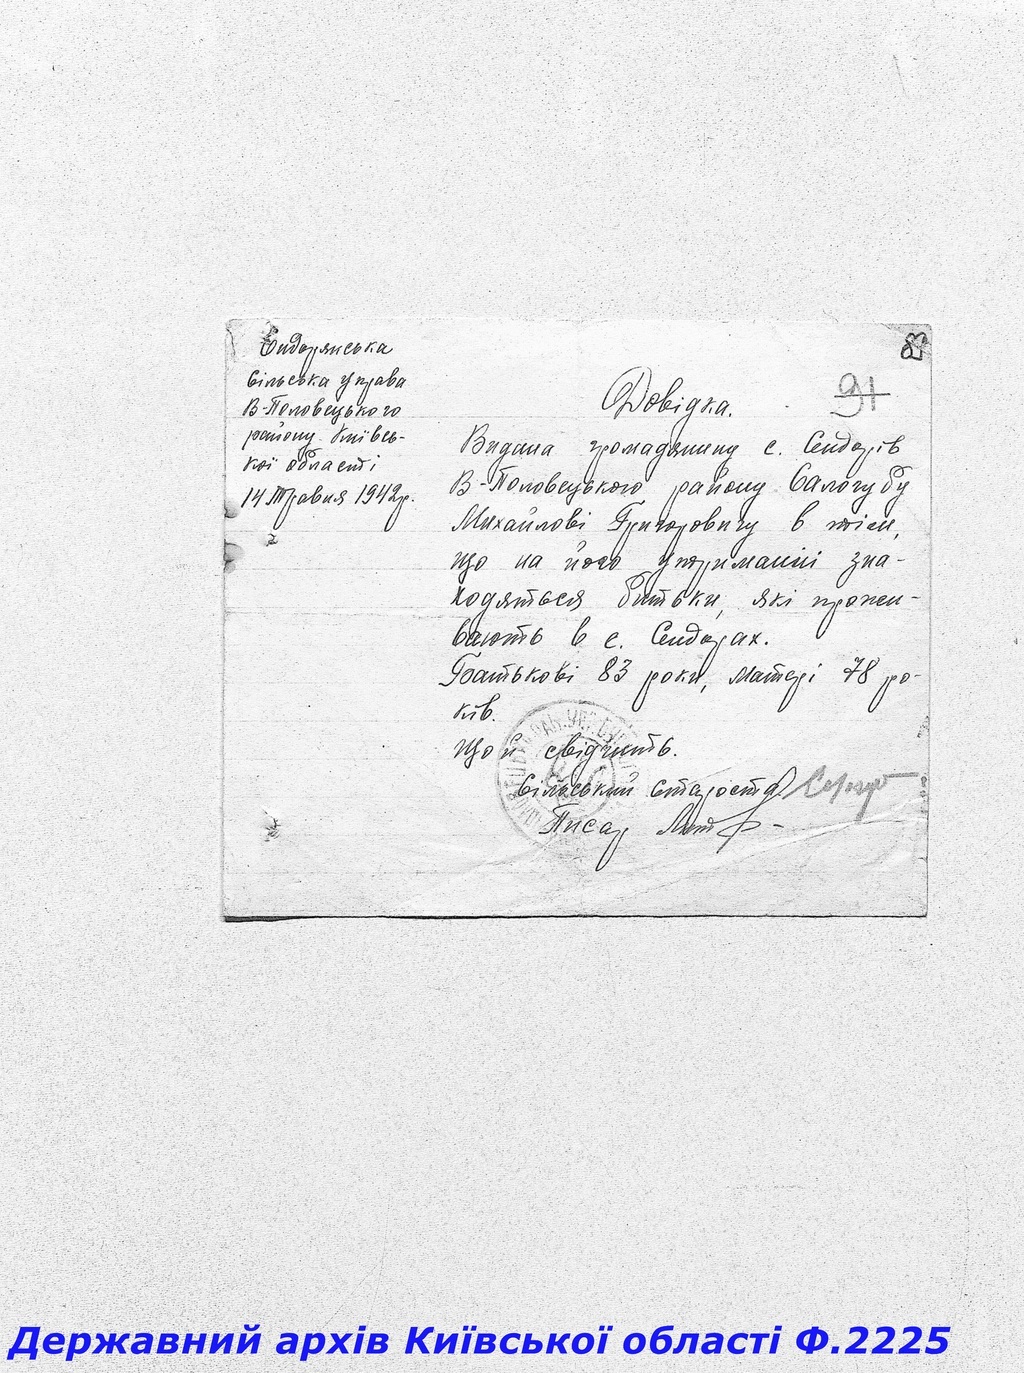 Сидорянська
сільська управа
В-Половецького
району Київсь-
кої області
14 Травня 1942р.
83
91
Довідка.
Видана громадянину с. Сендорів
В-Половецького району Салогубу
Михайлові Григоровичу в тім,
що на його утриманні зна-
ходяться батьки, які прожи-
вають в с. Сендорах.
Батькові 83 роки, матері 78 ро-
ків.
Що й свідчить.
Сільський староста
Писар
Державний архів Київської області Ф.2225